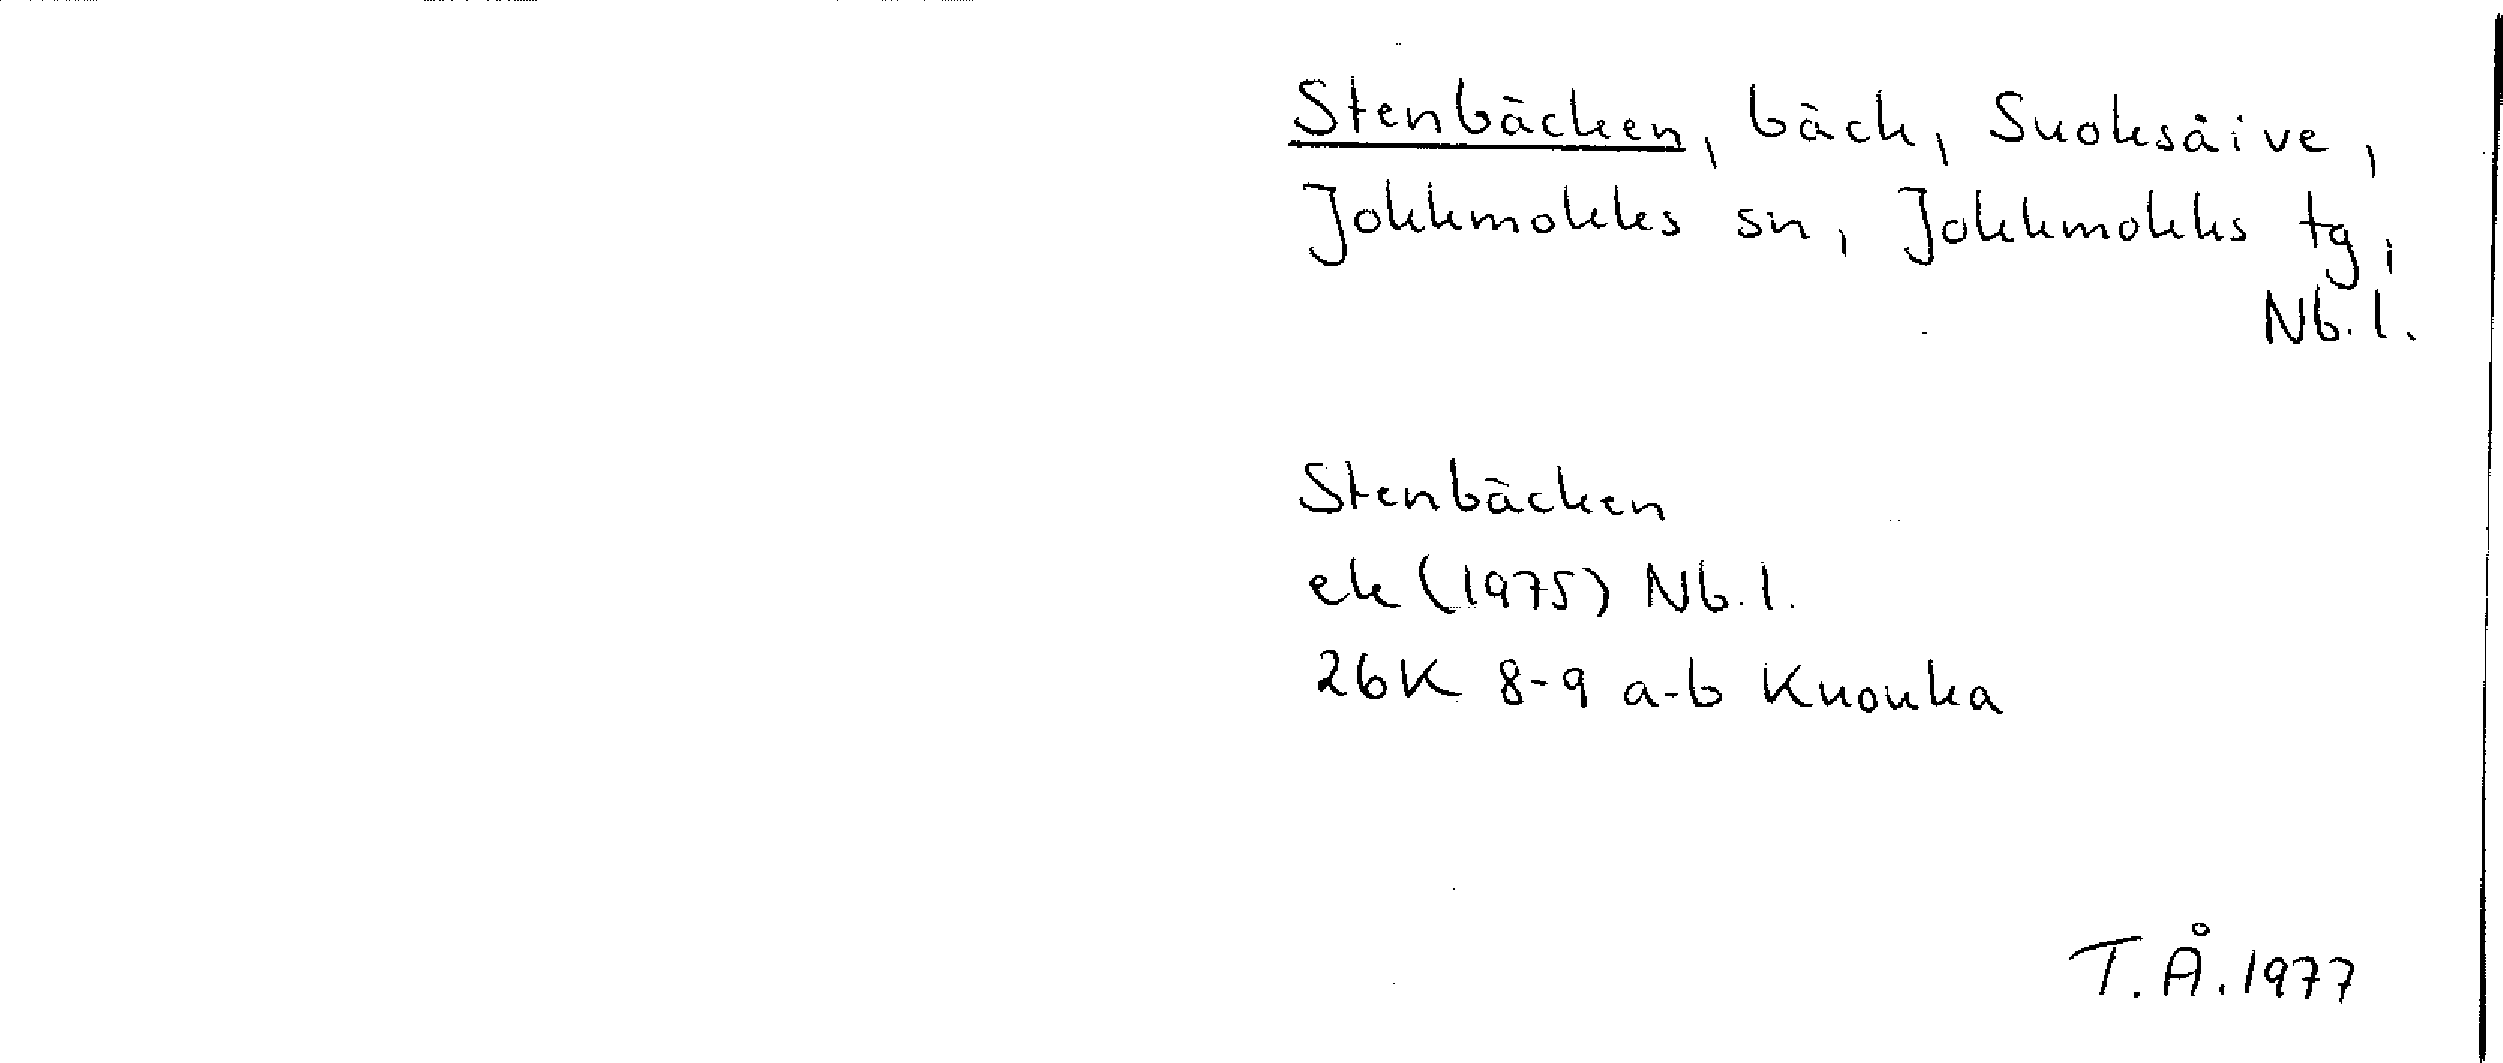 Stenbäcken, bäck, Suoksåive,
Jokkmokks sn, Jokkmokks tg,
Nb.l.
Stenbäcken
ek (1975) Nb.l.
26K 8-9 a-b Kuouka
T.Å.1977